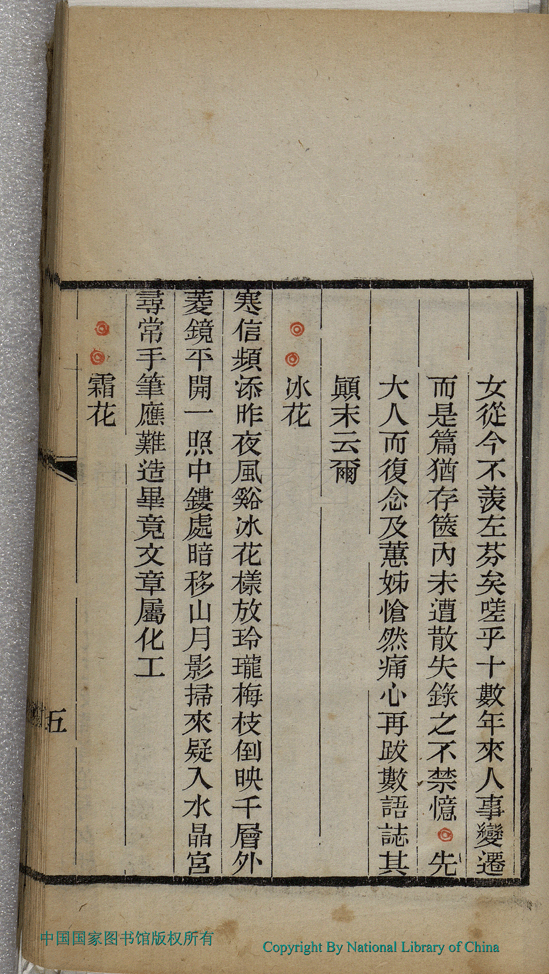 女從今不羨左芬矣嗟乎十數年來人事變遷
而是篇猶存篋內未遭散失錄之不禁憶◎先
大人而復念及蕙姊愴然痛心再跋數語誌其
顚末云爾
◎◎冰花
寒信頻添昨夜風谿冰花樣放玲瓏梅枝倒映千層外
菱鏡平開一照中鏤處暗移山月影掃來疑入水晶宮
尋常手筆應難造畢竟文章屬化工
◎◎霜花
五
中国国家图书馆版权所有
Copyright By National Library of China